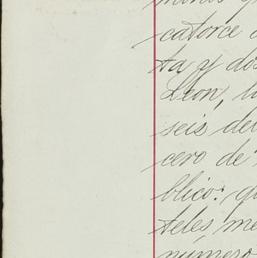 catorce
ta y dos
Leon, la
seis del
cero de
blico: qu
teles, me
numero